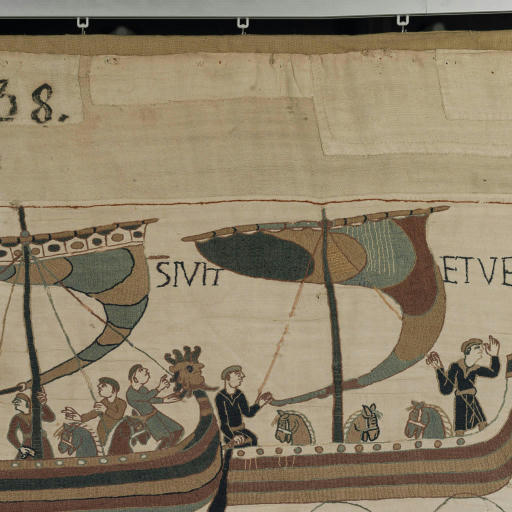 38.
SIVIT ETVE